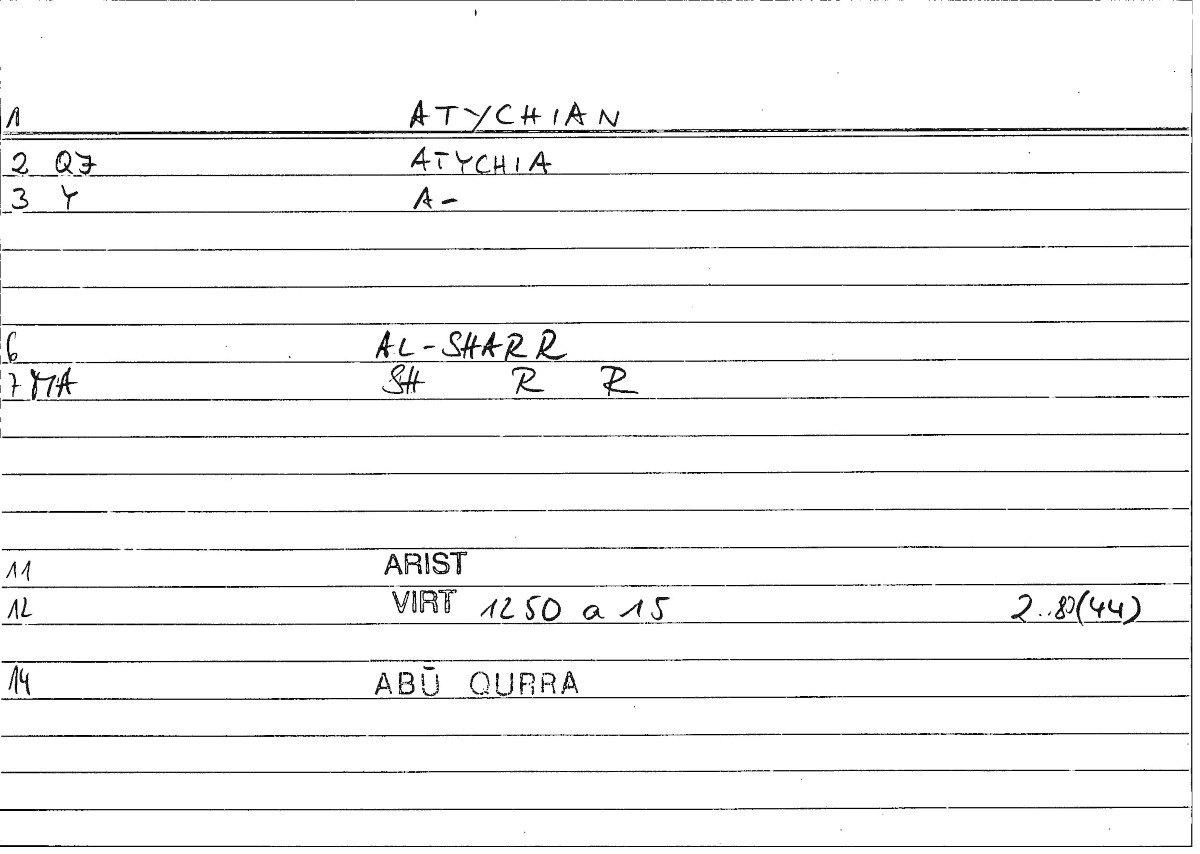 1 ATYCHIAN
2 Q7 ATYCHIA
3 Y A-
6 AL-SHARR
7 MA SH R R
11 ARIST
12 VIRT 1250 a 15 2..80(44)
14 ABŪ QURRA